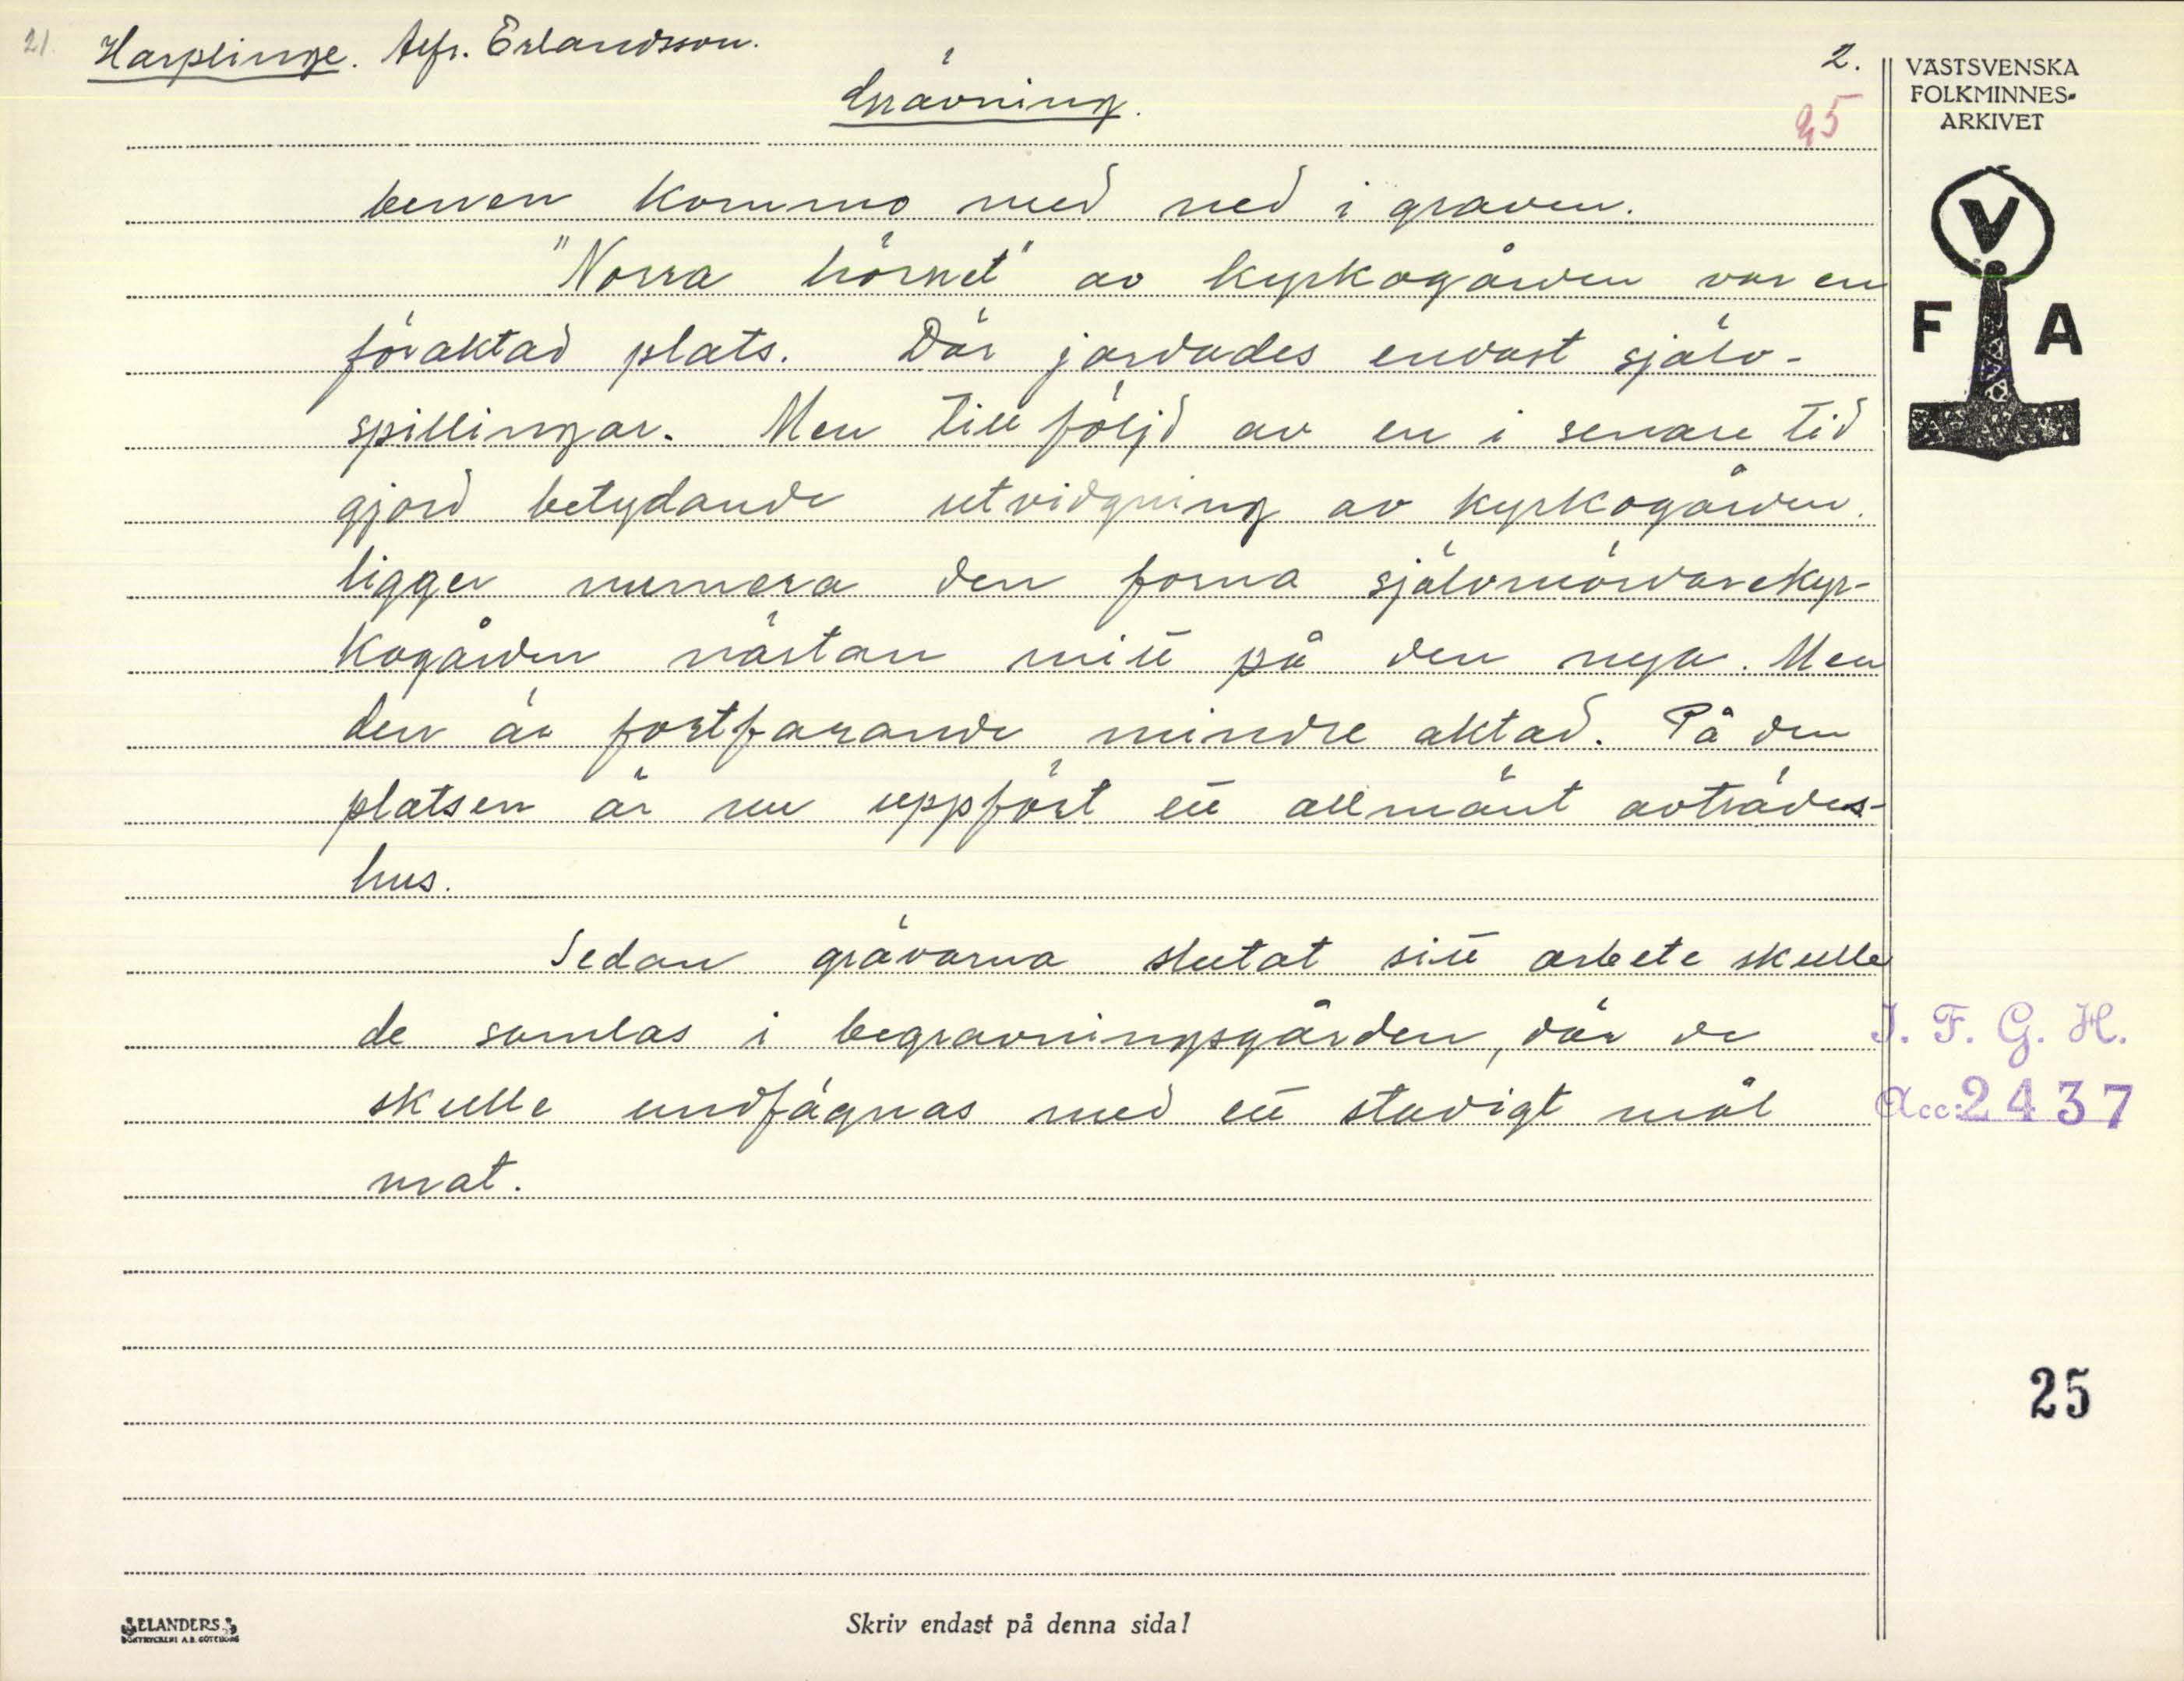 21. Harplinge. Alfr. Erlandsson. 2.
Grävning. 25
benen kommo med ned i graven.
"Norra hörnet" av kyrkogården var en
föraktad plats. Där jordades endast själv-
spillingar. Men till följd av en i senare tid
gjord betydande utvidgning av kyrkogården.
ligger numera den forna självmördarekyr-
kogården nästan mitt på den nya. Men
den är fortfarande mindre aktad. På den
platsen är nu uppfört ett allmänt avträdes-
hus.
Sedan grävarna slutat sitt arbete skulle
de samlas i begravningsgården, där de
skulle undfägnas med ett stadigt mål
mat.
VÄSTSVENSKA
FOLKMINNES-
ARKIVET
V
F A
I. F. G. H.
Acc: 2437
25
ELANDERS
BOKTRYCKERI A.B. GÖTEBORG
Skriv endast på denna sida!